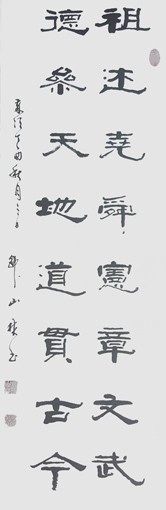 祖述堯舜憲章文武
德參天地道貫古今